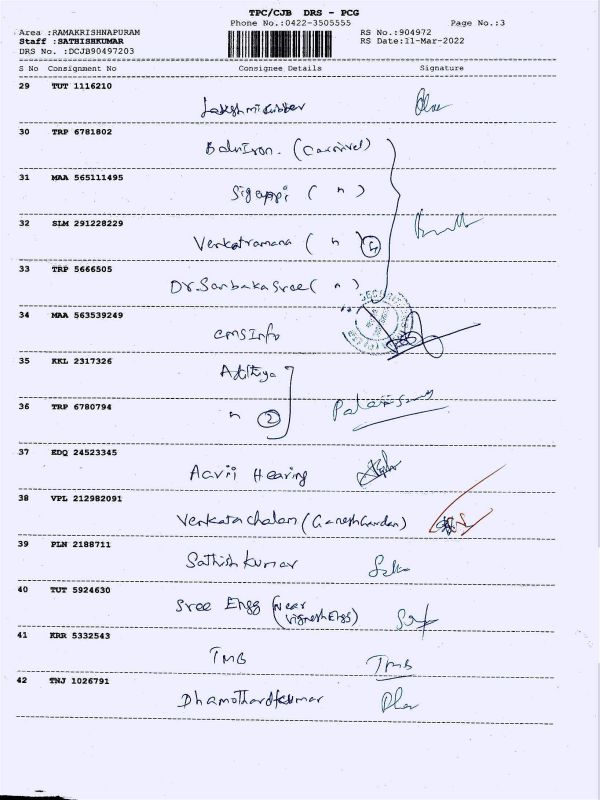 TPC/CJB DRS - PCG
Phone No.:0422-3505555 Page No.:3
Area :RAMAKRISHNAPURAM RS No.:904972
Staff :SATHISHKUMAR RS Date:11-Mar-2022
DRS No. :DCJB90497203
S No Consignment No Consignee Details Signature
29 TUT 1116210
Lakshmi Rubber
30 TRP 6781802
(Carnivel)
31 MAA 565111495
Sigappi ( " )
32 SLM 291228229
Venkatramana ( " ) 4
33 TRP 5666505
Dr. Sanbakasree ( " )
34 MAA 563539249
CMSInfo
35 KKL 2317326
Adithya
36 TRP 6780794
" 2
37 EDQ 24523345
Aavii Hearing
38 VPL 212982091
Venkatachalam (Ganesh Garden)
39 PLN 2188711
Sathish Kumar
40 TUT 5924630
Sree Engg (Near
Vignesh Engg)
41 KRR 5332543
TMB TMB
42 TNJ 1026791